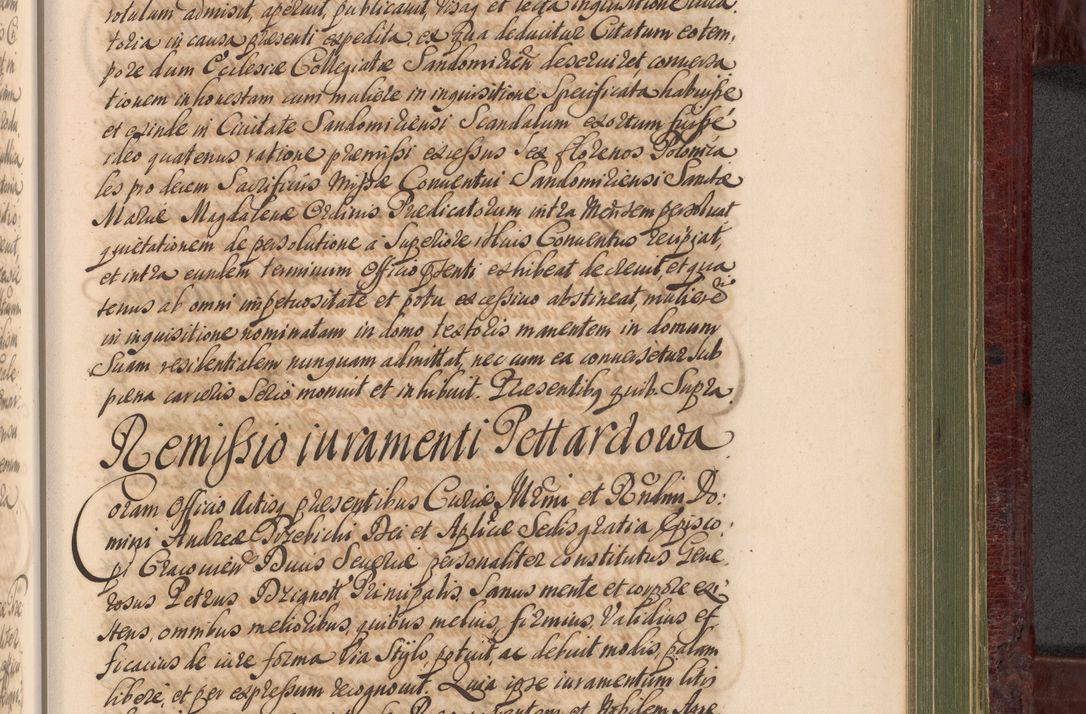 rotulum admisit, aperuit, publicavit, visaq et lecta inquisitione iura
toria in causa presenti expedita, ex qua deducitur Citatum eo tem,
pore dum Ecclesiæ Collegiatæ Sandomirien deserviret conversa
tionem inhonestam cum muliere in inquisitione Specificata habuisse
et exinde in Civitate Sandomiriensi Scandalum exortum fuisse
ideo quatenus ratione præmissi excessus Sex florenos Polonica
les pro decem Sacrificiis Missæ Conventui Sandomiriensi Sanctæ
Mariæ Magdalenæ Ordinis Prædicatorum intra Mensem persoluat
quietationem de persolutione a Superiore illius Conventus recipiat,
et intra eundem terminum Officio pnti exhibeat decrevit et qua
tenus ab omni impetuositate et potu excessivo abstineat, muliere
in inquisitione nominatam in domo textoris manentem in domum
Suam residentialem nunquam admittat, nec cum ea conversetur Sub
pœna carceris Serio monuit et inhibuit. Præsentibq quib. Supra.
Remissio iuramenti Pettardowa
Coram Officio Actisq presentibus Curiæ Illrmi et Rndmi Do:
mini Andreæ Trzebicki Dei et Aplicæ Sedis gratia Episco:
pi Cracovien Ducis Severiæ personaliter constitutus Gene
rosus Petrus Brignott Principalis, Sanus mente et corpore exi
stens, omnibus melioribus, quibus melius, firmius, Validius ef
ficacius de iure forma Via Stylo, potuit, ac debuit modis, palam
libere, et per expressum recognovit. Quia ipse iuramentum litis